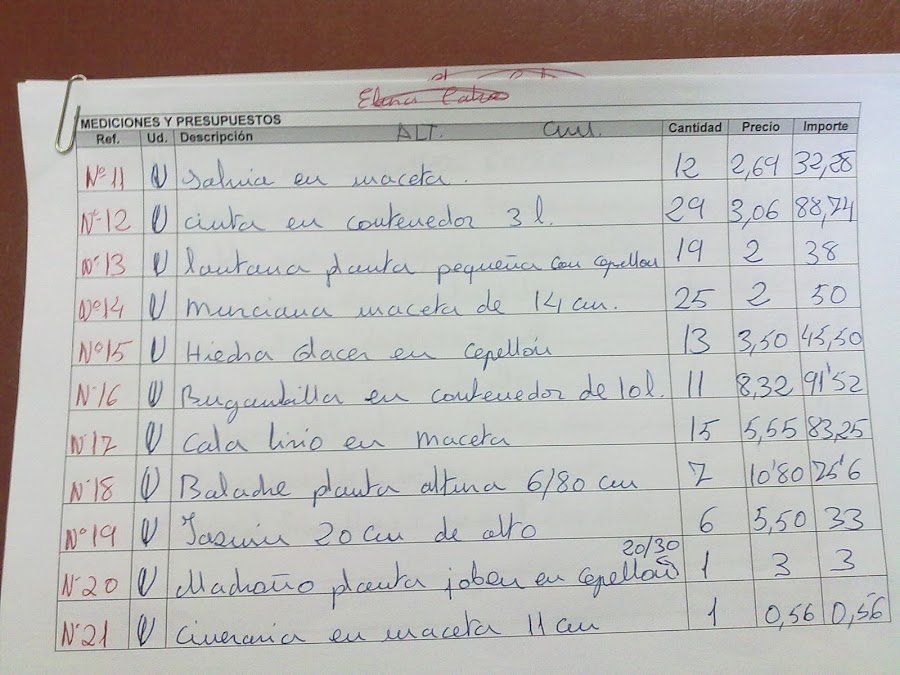 Elena
MEDICIONES Y PRESUPUESTOS
Ref. Ud. Descripción ALT. Cant. Cantidad Precio Importe
Nº 11 U Salvia en maceta. 12 2,69 32,28
Nº 12 U cinta en contenedor 3 l. 29 3,06 88,74
Nº 13 U lantana planta pequeña con cepellon 19 2 38
Nº 14 U Murciana maceta de 14 cm. 25 2 50
Nº 15 U Hiedra Glacer en cepellón 13 3,50 45,50
Nº 16 U Buganbilla en contenedor de 10 l. 11 8,32 91'52
Nº 17 U Cala lirio en maceta 15 5,55 83,25
Nº 18 U Baladre planta altura 6/80 cm 7 10'80 75'6
Nº 19 U Jasmin 20 cm de alto 6 5,50 33
20/30
Nº 20 U Madroño planta joben en cepellon 1 3 3
Nº 21 U Cineraria en maceta 11 cm 1 0,56 0,56